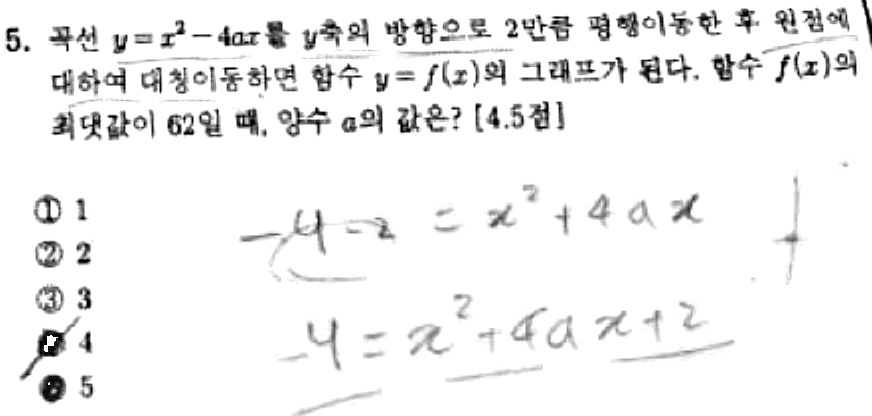 5. 곡선 y=x²-4ax를 y축의 방향으로 2만큼 평행이동한 후 원점에
대하여 대칭이동하면 함수 y=f(x)의 그래프가 된다. 함수 f(x)의
최댓값이 62일 때, 양수 a의 값은? [4.5점]
① 1
② 2
③ 3
4
5
-y-2 = x²+4ax
-y = x²+4ax+2